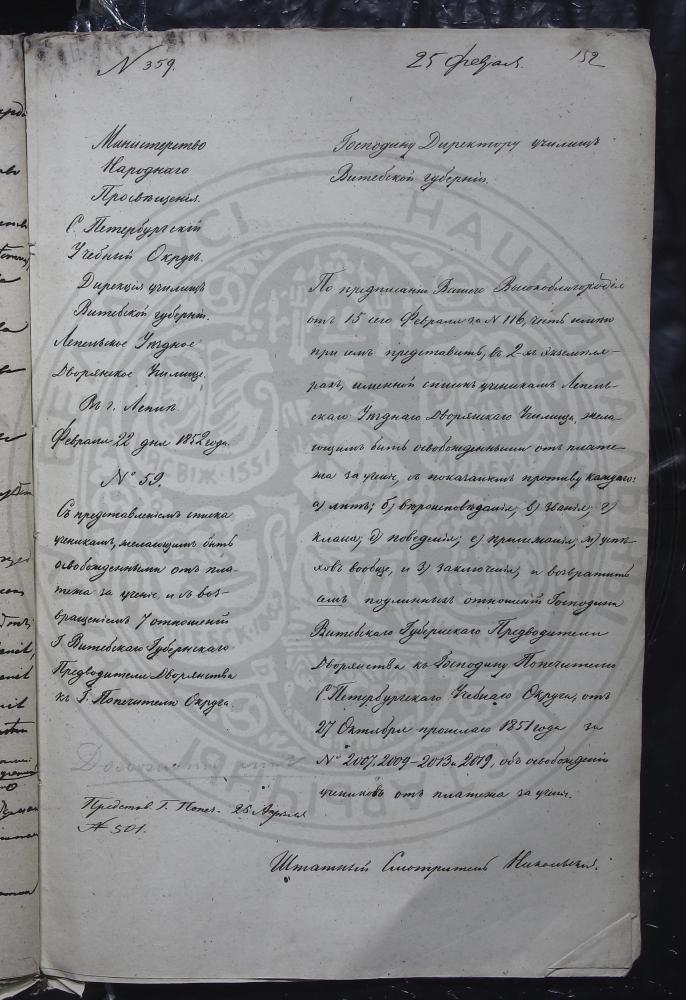 N 359.
25 Февраля.
152
Министерство
Народнаго
Просвѣщенія.
С. Петербургскій
Учебный Округъ.
Дирекція училищъ
Витебской губерніи.
Лепельское Уѣздное
Дворянское Училище.
Въ г. Лепелѣ.
Февраля 22 дня 1852 года.
№ 59.
Съ представленіемъ списка
ученикамъ, желающимъ быть
освобожденными отъ пла-
тежа за ученіе, и съ воз-
вращеніемъ 7 отношеній
Г. Витебскаго Губернскаго
Предводителя Дворянства
къ Г. Попечителю Округа.
Представ. Г. Попеч. 26 Апрѣля
№ 501.
Господину Директору училищъ
Витебской губерніи.
По предписанію Вашего Высокоблагородія
отъ 15 сего Февраля за N 116, честь имѣю
при семъ представить, въ 2-хъ экземпля-
рахъ, именной списокъ ученикамъ Лепель-
скаго Уѣзднаго Дворянскаго Училища, жела-
ющимъ быть освобожденными отъ плате-
жа за ученіе, съ показаніемъ противу каждаго:
а) лѣтъ; б) вѣроисповѣданія; в) званія; г)
класса; д) поведенія; е) прилежанія; ж) успѣ-
ховъ вообще, и з) заключенія, и возвратить
семь подлинныхъ отношеній Господина
Витебскаго Губернскаго Предводителя
Дворянства къ Господину Попечителю
С. Петербургскаго Учебнаго Округа, отъ
27 Октября прошлаго 1851 года за
№ 2007, 2009-2013 и 2019, объ освобожденіи
учениковъ отъ платежа за ученіе.
Штатный Смотритель Никольскій.